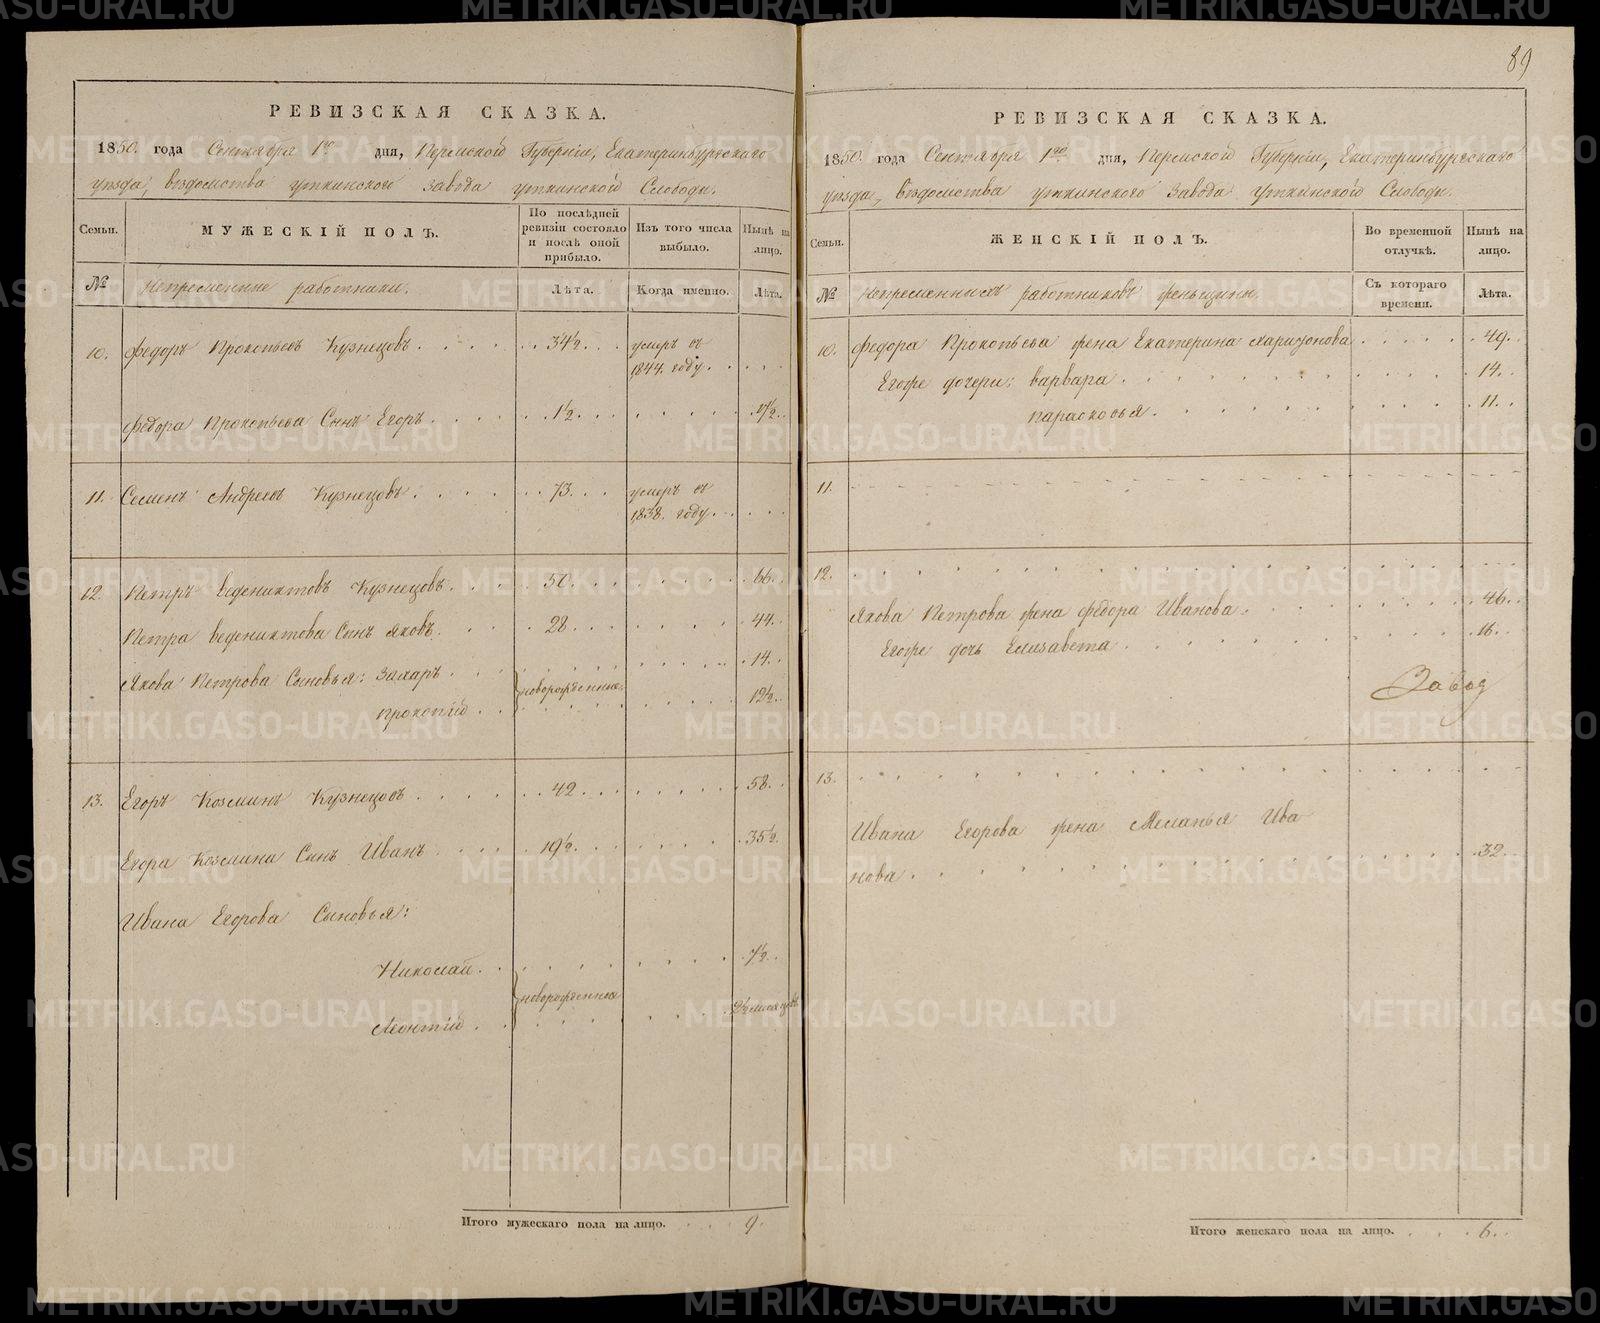 89
РЕВИЗСКАЯ СКАЗКА.
1850. года Сентября 1го дня, Пермской Губерніи, Екатеринбургскаго
уезда, ведомства уткинского завода уткинской Слободы.
Семьи. МУЖЕСКІЙ ПОЛЪ. По послѣдней ревизіи состояло и послѣ оной прибыло. Изъ того числа выбыло. Нынѣ на лицо.
№ Непременные работники. Лѣта. Когда именно. Лѣта.
10. Федоръ Прокопьевъ Кузнецовъ 34½ умеръ въ
1844. году.
Федора Прокопьева Сынъ Егоръ 1½ 17½
11. Семенъ Андреевъ Кузнецовъ 73. умеръ въ
1838. году.
12. Петръ Ведениктовъ Кузнецовъ 50. 66.
Петра Ведениктова Сынъ Яковъ 28 44.
Якова Петрова Сыновья: Захаръ 14.
новорожденные
Прокопій 12½
13. Егоръ Козминъ Кузнецовъ 42 58.
Егора Козмина Сынъ Иванъ 19½ 35½
Ивана Егорова Сыновья:
Николай 7½
новорожденные
Леонтій 2½ месяцовъ
Итого мужескаго пола на лицо. 9.
РЕВИЗСКАЯ СКАЗКА.
1850. года Сентября 1го дня, Пермской Губерніи, Екатеринбургскаго
уезда, ведомства уткинского Завода уткинской Слободы.
Семьи. ЖЕНСКІЙ ПОЛЪ. Во временной отлучкѣ. Нынѣ на лицо.
№ Непременныхъ работниковъ женщины. Съ котораго времени. Лѣта.
10. Федора Прокопьева жена Екатерина Харитонова 49.
Егоже дочери: Варвара 14.
Парасковья 11.
11.
12.
Якова Петрова жена Федора Иванова 46.
Егоже дочь Елисавета 16.
Завод
13.
Ивана Егорова жена Меланья Ива
нова 32
Итого женскаго пола на лицо. 6.
METRIKI.GASO-URAL.RU